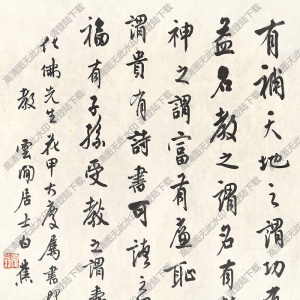 有補天地之謂功有
益名教之謂名有
神之謂富有廉恥
謂貴有詩書可讀之
福有子孫受教之謂
化佛先生花甲大慶屬書
教 雲間居士白蕉
高清图无此水印登陆下载